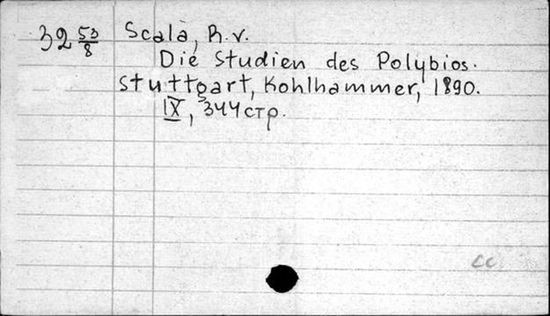 32 53/8 Scala, R. v.
Die Studien des Polybios.
Stuttgart, Kohlhammer, 1890.
IX, 344 стр.
cc